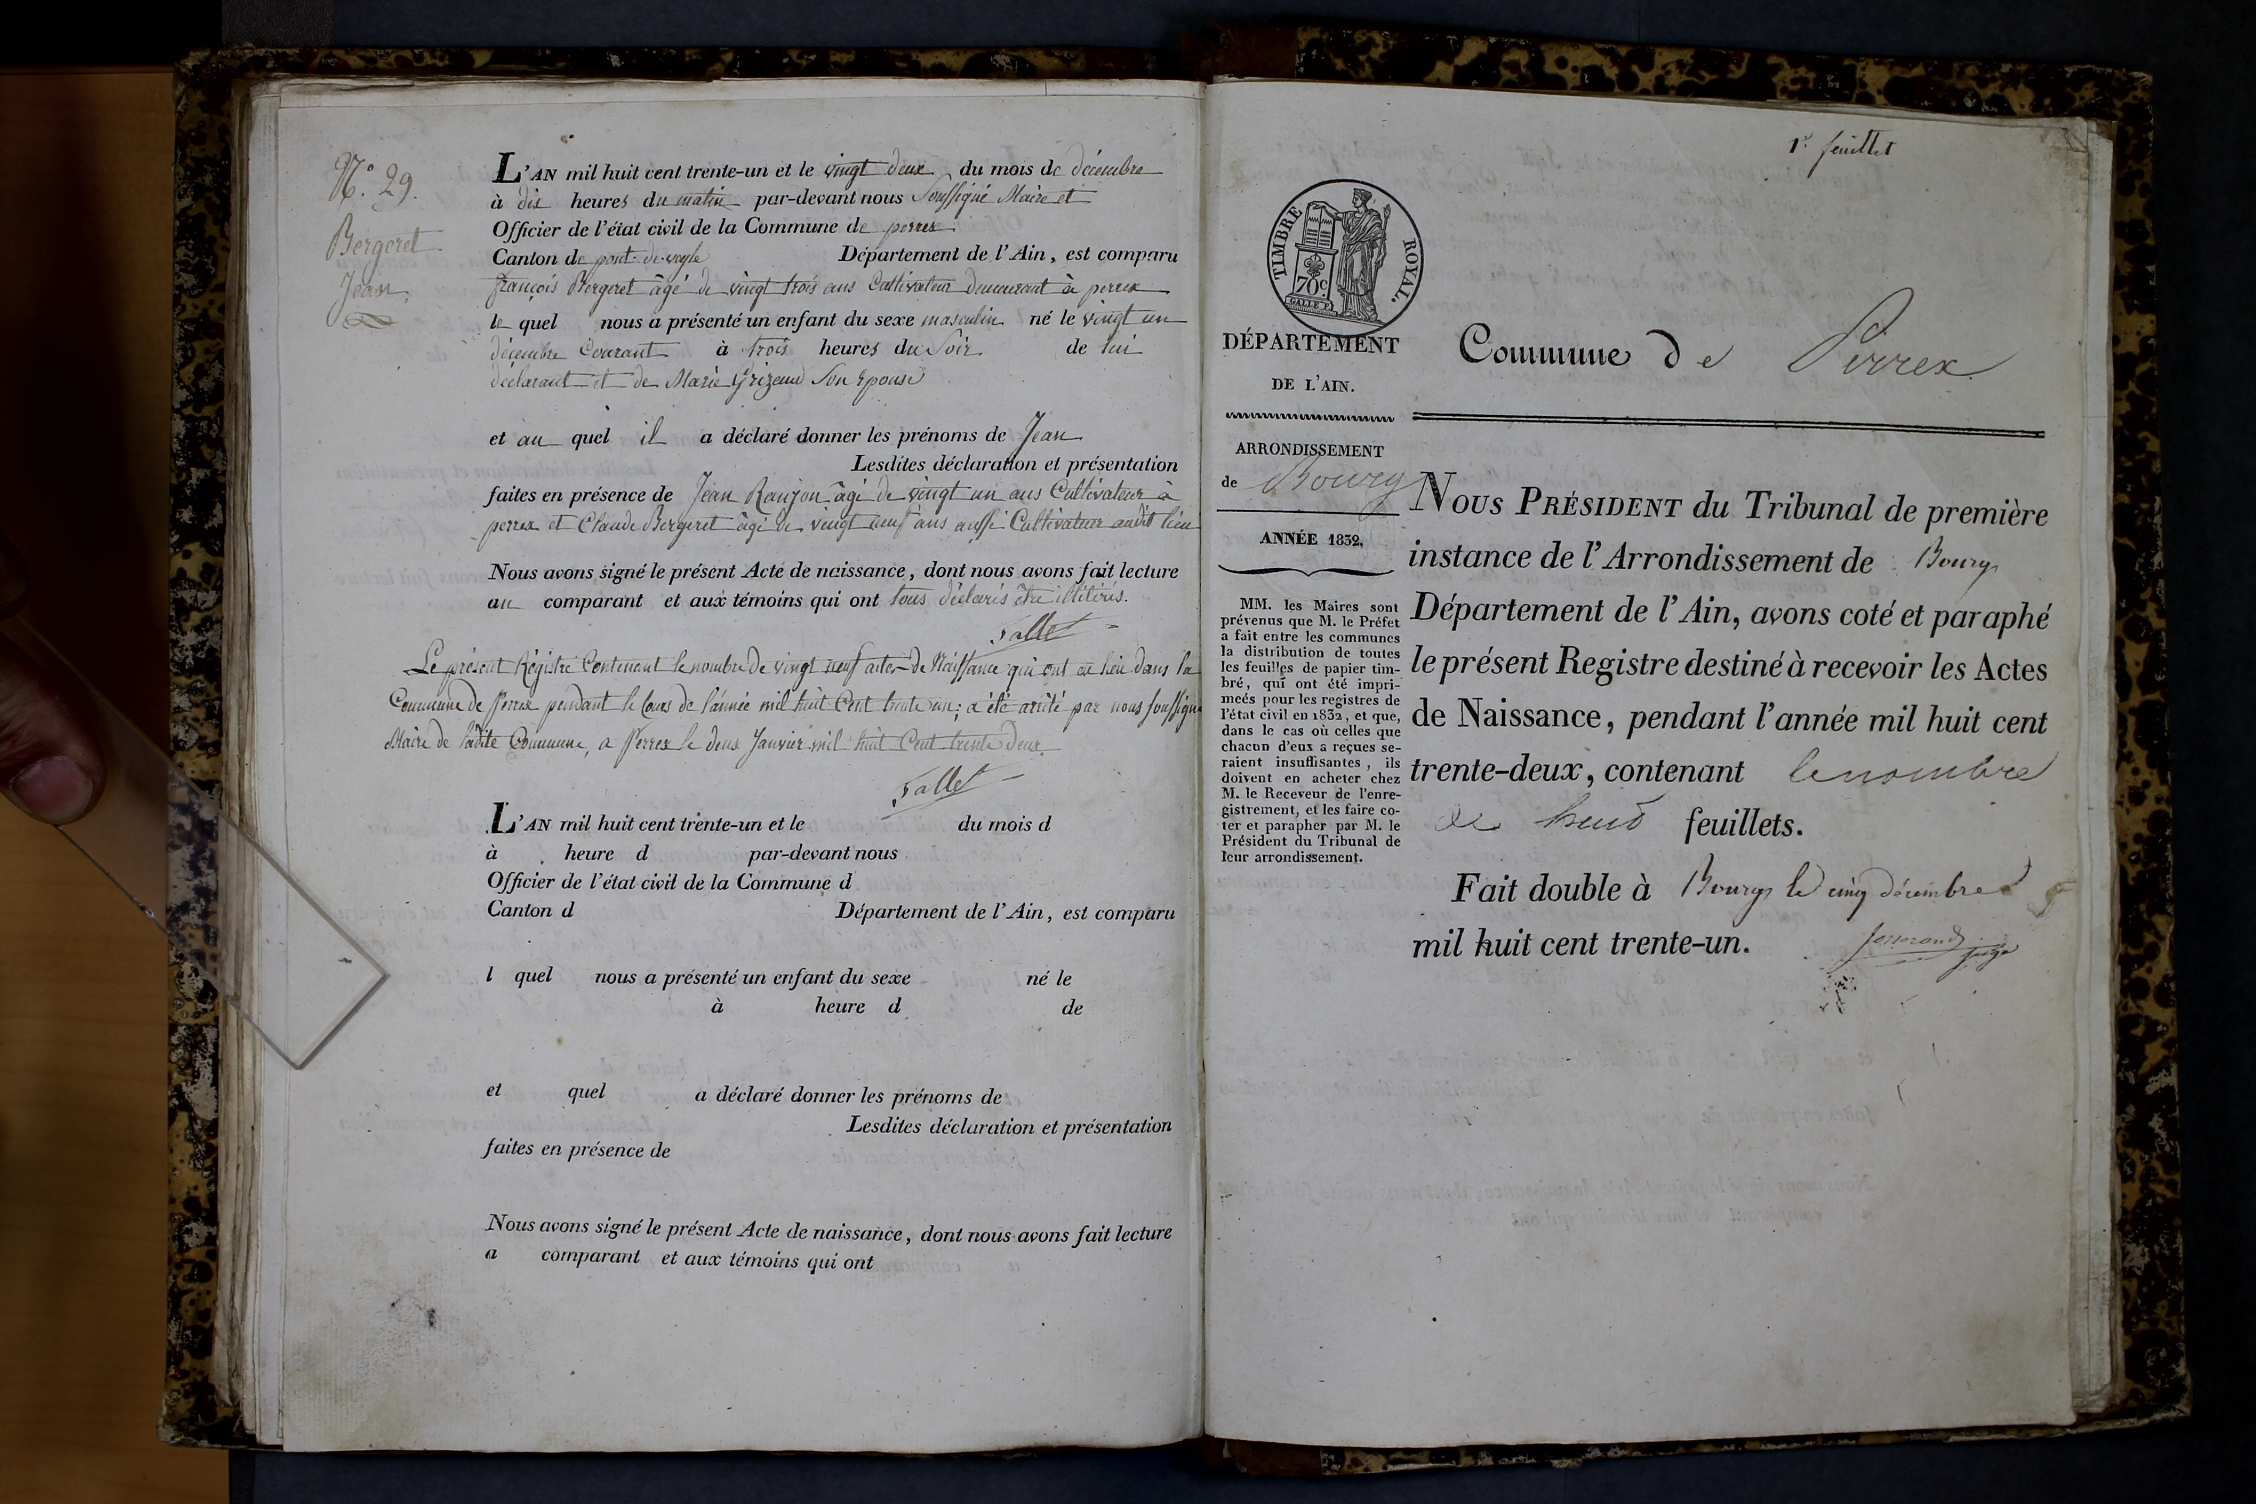 N.o 29.
Bergeret
Jean.
L'AN mil huit cent trente-un et le vingt deux du mois de décembre
à dix heures du matin par-devant nous Soussigné Maire et
Officier de l'état civil de la Commune de perrex
Canton de pont-de-veyle Département de l'Ain, est comparu
françois Bergeret âgé de vingt trois ans Cultivateur demeurant à perrex
le quel nous a présenté un enfant du sexe masculin né le vingt un
décembre Courant à trois heures du Soir de lui
déclarant et de Marie Grizeau Son Epouse
et au quel il a déclaré donner les prénoms de Jean
Lesdites déclaration et présentation
faites en présence de Jean Ranjon âgé de vingt un ans Cultivateur à
perrex et Claude Bergeret âgé de vingt neuf ans aussi Cultivateur audit lieu
Nous avons signé le présent Acte de naissance, dont nous avons fait lecture
au comparant et aux témoins qui ont tous déclarés être illitérés.
Le présent Régistre Contenant le nombre de vingt neuf actes de Naissance qui ont eu lieu dans la
Commune de Perrex pendant le Cours de l'année mil huit Cent trente un; a été arrêté par nous soussigné
Maire de ladite Commune, a Perrex le deux Janvier mil huit Cent trente deux
L'AN mil huit cent trente-un et le du mois d
à heure d par-devant nous
Officier de l'état civil de la Commune d
Canton d Département de l'Ain, est comparu
l quel nous a présenté un enfant du sexe né le
à heure d de
et quel a déclaré donner les prénoms de
Lesdites déclaration et présentation
faites en présence de
Nous avons signé le présent Acte de naissance, dont nous avons fait lecture
a comparant et aux témoins qui ont
1r feuillet
TIMBRE ROYAL.
70c.
DÉPARTEMENT
DE L'AIN.
ARRONDISSEMENT
de Bourg
ANNÉE 1832.
MM. les Maires sont
prévenus que M. le Préfet
a fait entre les communes
la distribution de toutes
les feuilles de papier tim-
bré, qui ont été impri-
meés pour les registres de
l'état civil en 1832, et que,
dans le cas où celles que
chacun d'eux a reçues se-
raient insuffisantes, ils
doivent en acheter chez
M. le Receveur de l'enre-
gistrement, et les faire co-
ter et parapher par M. le
Président du Tribunal de
leur arrondissement.
Commune de Perrex
NOUS PRÉSIDENT du Tribunal de première
instance de l'Arrondissement de Bourg
Département de l'Ain, avons coté et paraphé
le présent Registre destiné à recevoir les Actes
de Naissance, pendant l'année mil huit cent
trente-deux, contenant le nombre
de huit feuillets.
Fait double à Bourg le cinq décembre
mil huit cent trente-un.
juge